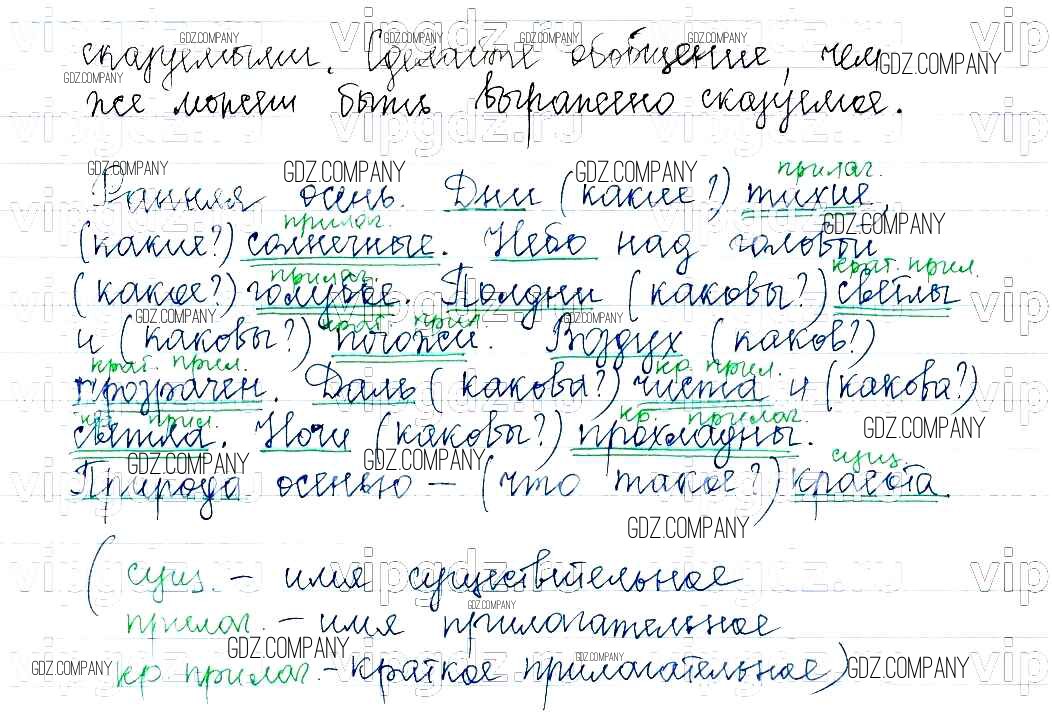 сказуемыми. Сделайте обобщение, чем
же может быть выражено сказуемое.
прилаг.
Ранняя осень. Дни (какие?) тихие,
прилаг.
(какие?) солнечные. Небо над головой
прилаг. крат. прил.
(какое?) голубое. Полдни (каковы?) светлы
крат. прил.
и (каковы?) погожи. Воздух (каков?)
крат. прил. кр. прил.
прозрачен. Даль (какова?) чиста и (какова?)
кр. прил. кр. прилаг.
светла. Ночи (каковы?) прохладны.
сущ.
Природа осенью – (что такое?) красота.
(сущ. – имя существительное
прилаг. – имя прилагательное
кр. прилаг. – краткое прилагательное)
GDZ.COMPANY
vipgdz.ru